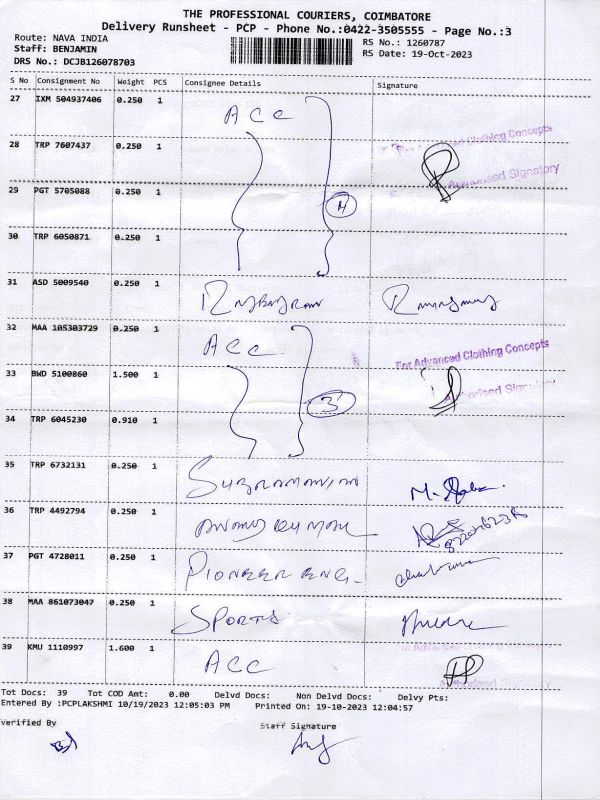 THE PROFESSIONAL COURIERS, COIMBATORE
Delivery Runsheet - PCP - Phone No.:0422-3505555 - Page No.:3
Route: NAVA INDIA RS No.: 1260787
Staff: BENJAMIN RS Date: 19-Oct-2023
DRS No.: DCJB126078703
S No Consignment No Weight PCS Consignee Details Signature
27 IXM 504937406 0.250 1 ACC
28 TRP 7607437 0.250 1 For Advanced Clothing Concepts
Authorised Signatory
29 PGT 5705088 0.250 1 4
30 TRP 6050871 0.250 1
31 ASD 5009540 0.250 1
32 MAA 105303729 0.250 1 ACC For Advanced Clothing Concepts
33 BWD 5100860 1.500 1 Authorised Signatory
34 TRP 6045230 0.910 1 3
35 TRP 6732131 0.250 1 SUBRAMANIAN
36 TRP 4492794 0.250 1
37 PGT 4728011 0.250 1 PIONEER ENG.
38 MAA 861073047 0.250 1 SPORTS
For Advanced Clothing Concepts
39 KMU 1110997 1.600 1 ACC
Authorised Signatory
Tot Docs: 39 Tot COD Amt: 0.00 Delvd Docs: Non Delvd Docs: Delvy Pts:
Entered By :PCPLAKSHMI 10/19/2023 12:05:03 PM Printed On: 19-10-2023 12:04:57
verified By Staff Signature